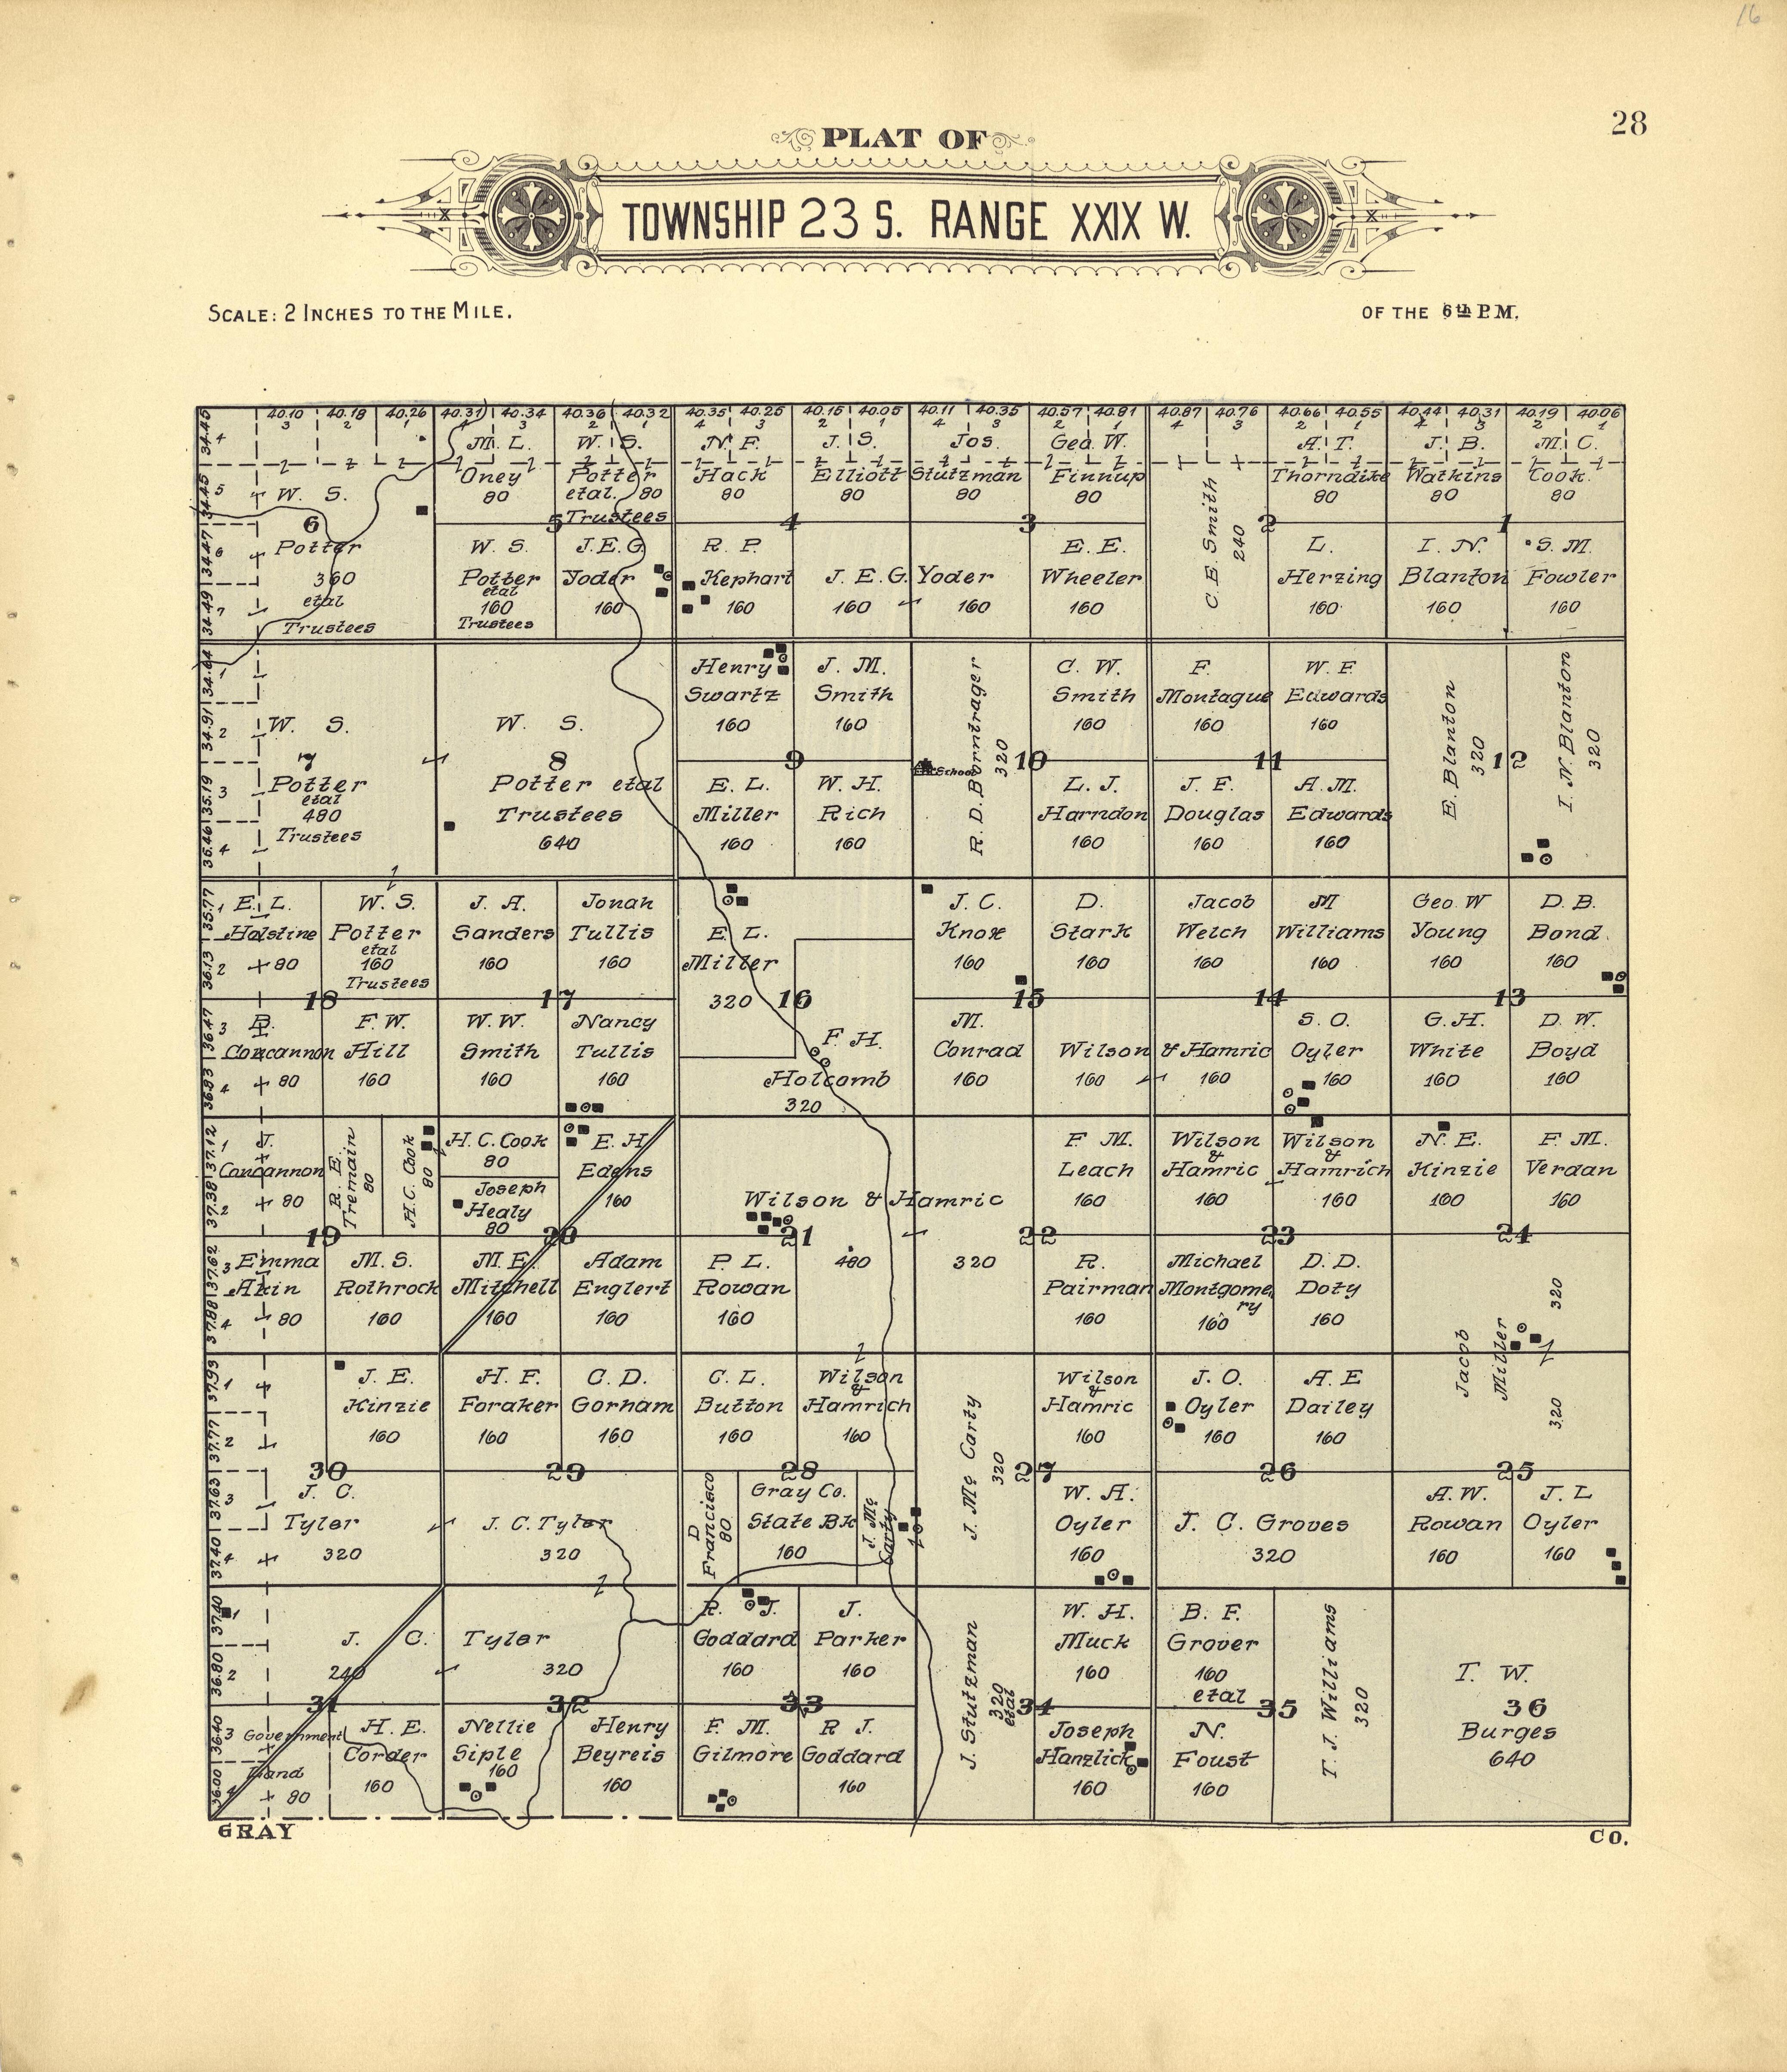 16
28
PLAT OF
TOWNSHIP 23 S. RANGE XXIX W.
SCALE: 2 INCHES TO THE MILE.
OF THE 6th P.M.
40.10 40.18 40.26 40.31 40.34 40.36 40.32 40.35 40.25 40.15 40.05 40.11 40.35 40.57 40.81 40.87 40.76 40.66 40.55 40.44 40.31 40.19 40.06
3 2 1 4 3 2 1 4 3 2 1 4 3 2 1 4 3 2 1 4 3 2 1
34.45
4
34.45
5
34.47
6
34.49
7
W. S.
6
Potter
360
etal
Trustees
M. L.
Oney
80
W. S.
Potter
etal. 80
Trustees
5
W. S.
Potter
etal
160
Trustees
J. E. G.
Yoder
160
N. F.
Hack
80
J. S.
Elliott
80
4
R. P.
Kephart
160
J. E. G. Yoder
160
160
Jos.
Stutzman
80
Geo. W.
Finnup
80
3
E. E.
Wheeler
160
C. E. Smith
240
A. T.
Thorndike
80
2
L.
Herzing
160
J. B.
Watkins
80
M. C.
Cook
80
1
I. N.
Blanton
160
S. M.
Fowler
160
34.64
1
34.91
2
35.19
3
35.46
4
W. S.
7
Potter
etal
480
Trustees
W. S.
8
Potter etal
Trustees
640
Henry
Swartz
160
J. M.
Smith
160
9
E. L.
Miller
160
W. H.
Rich
160
School
R. D. Borntrager
320
10
C. W.
Smith
160
L. J.
Harndon
160
F.
Montague
160
W. F.
Edwards
160
11
J. F.
Douglas
160
A. M.
Edwards
160
E. Blanton
320
12
I. N. Blanton
320
35.77
1
36.13
2
36.47
3
36.83
4
E. L.
Holstine
80
W. S.
Potter
etal
160
Trustees
18
Concannon
80
F. W.
Hill
160
J. A.
Sanders
160
Jonah
Tullis
160
17
W. W.
Smith
160
Nancy
Tullis
160
E. L.
Miller
320
16
F. H.
Holcomb
320
J. C.
Knox
160
D.
Stark
160
15
M.
Conrad
160
Wilson & Hamric
160
160
Jacob
Welch
160
M
Williams
160
14
S. O.
Oyler
160
Geo. W
Young
160
D. B.
Bond
160
13
G. H.
White
160
D. W.
Boyd
160
37.12
1
37.38
2
37.62
3
37.88
4
J.
Concannon
80
R. E.
Tremain
80
H. C. Cook
80
19
Emma
Akin
80
M. S.
Rothrock
160
H. C. Cook
80
Joseph
Healy
80
E. H
Edens
160
20
M. E.
Mitchell
160
Adam
Englert
160
Wilson & Hamric
21
480
320
P. L.
Rowan
160
F. M.
Leach
160
22
R.
Pairman
160
Wilson
&
Hamric
160
Wilson
&
Hamrich
160
23
Michael
Montgome
ry
160
D. D.
Doty
160
N. E.
Kinzie
160
F. M.
Verdan
160
24
320
Jacob
Miller
320
37.93
1
37.77
2
37.63
3
37.40
4
J. E.
Kinzie
160
30
J. C.
Tyler
320
H. F.
Foraker
160
C. D.
Gorham
160
29
J. C. Tyler
320
C. L.
Button
160
Wilson
&
Hamrich
160
28
D
Francisco
80
Gray Co.
State Bk
160
J. Mc
Carty
J. Mc Carty
320
27
Wilson
&
Hamric
160
W. A.
Oyler
160
J. O.
Oyler
160
A. E
Dailey
160
26
J. C. Groves
320
25
A. W.
Rowan
160
J. L
Oyler
160
37.40
1
36.80
2
36.40
3
36.00
4
J. C. Tyler
240
320
31
Government
Land
80
H. E.
Corder
160
32
Nellie
Siple
160
Henry
Beyreis
160
R. J.
Goddard
160
J.
Parker
160
33
F. M.
Gilmore
160
R J.
Goddard
160
J. Stutzman
320
etal
34
W. H.
Muck
160
Joseph
Hanzlick
160
B. F.
Grover
160
etal
35
N.
Foust
160
T. J. Williams
320
T. W.
36
Burges
640
GRAY
CO.